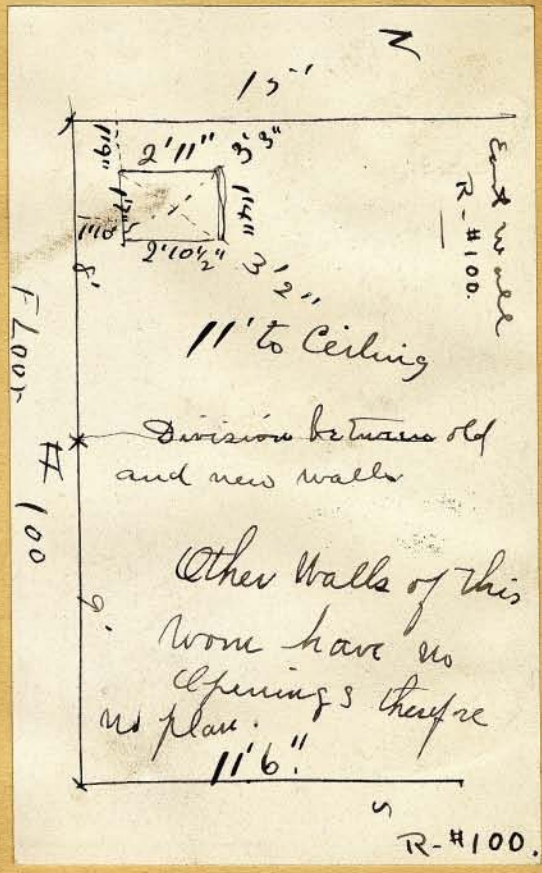 N
15'
1'9"
2'11"
3'3"
1'7"
1'4"
1'10"
2'10½"
3'2"
East Wall
R-#100.
8'
11' to Ceiling
Floor # 100
Division between old
and new walls
9'
Other Walls of this
room have no
Openings therefore
no plan.
11'6"
S
R-#100.